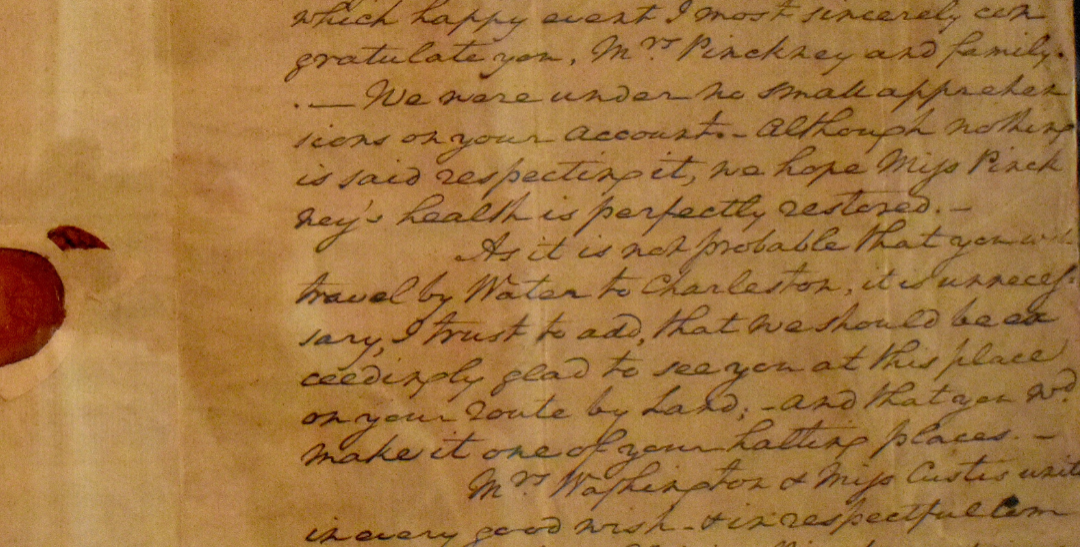 which happy event I most sincerely con
gratulate you, Mrs Pinckney and family.
.— We were under no small apprehen
sions on your account.– Although nothing
is said respecting it, we hope Miss Pinck
ney's health is perfectly restored.–
As it is not probable that you
travel by Water to Charleston, it is unneces-
sary, I trust to add, that we should be ex
ceedingly glad to see you at this place
on your route by Land; – and that you wd
make it one of your halting places. –
Mrs Washington & Miss Custis unite
in every good wish – & in respectful com